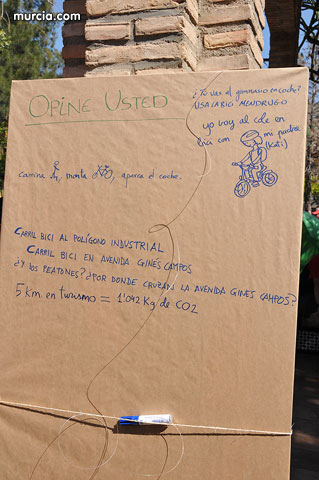 murcia.com
OPINE USTED
¿TU VAS AL GIMNASIO EN COCHE?
USA LA BICI MENDRUGO
yo voy al cole en
bici con mi padre
(Kati)
camina, monta, aparca el coche.
CARRIL BICI AL POLÍGONO INDUSTRIAL
CARRIL BICI EN AVENIDA GINÉS CAMPOS
¿Y LOS PEATONES? ¿POR DONDE CRUZAN LA AVENIDA GINES CAMPOS?
5 Km en turismo = 1'042 Kg de CO2